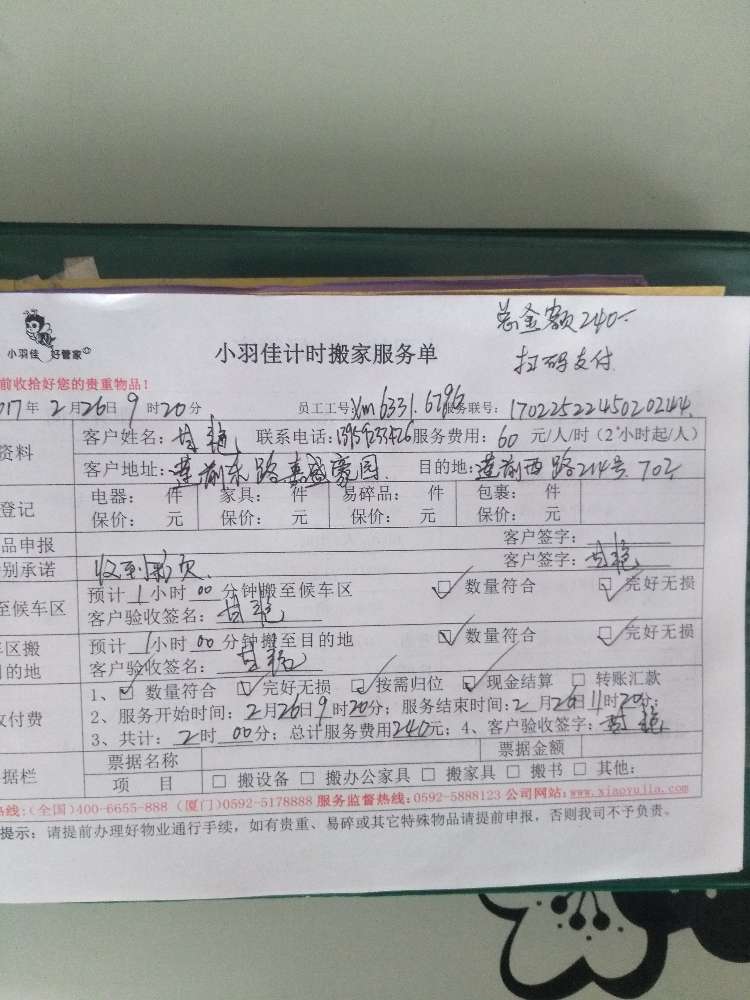 总金额240-
扫码支付
小羽佳 好管家
小羽佳计时搬家服务单
前收拾好您的贵重物品!
017年2月26日9时20分 员工工号:Xm6331.6796 服务联号:17022522450202144
资料 客户姓名: 联系电话: 服务费用:60元/人/时(2小时起/人)
客户地址:莲前东路嘉盛豪园 目的地:莲前西路214号702
登记 电器: 件 家具: 件 易碎品: 件 包裹: 件
保价: 元 保价: 元 保价: 元 保价: 元
品申报 客户签字:
别承诺 收到彩页. 客户签字:
至候车区 预计1小时00分钟搬至候车区 □数量符合 □完好无损
客户验收签名:
车区搬 预计1小时00分钟搬至目的地 □数量符合 □完好无损
目的地 客户验收签名:
收付费 1、□数量符合 □完好无损 □按需归位 □现金结算 □转账汇款
2、服务开始时间:2月26日9时20分;服务结束时间:2月26日11时20分;
3、共计:2时00分;总计服务费用240元;4、客户验收签字:
据栏 票据名称 票据金额
项 目 □搬设备 □搬办公家具 □搬家具 □搬书 □其他:
热线:(全国)400-6655-888 (厦门)0592-5178888 服务监督热线:0592-5888123 公司网站:www.xiaoyujia.com
提示:请提前办理好物业通行手续,如有贵重、易碎或其它特殊物品请提前申报,否则我司不予负责。